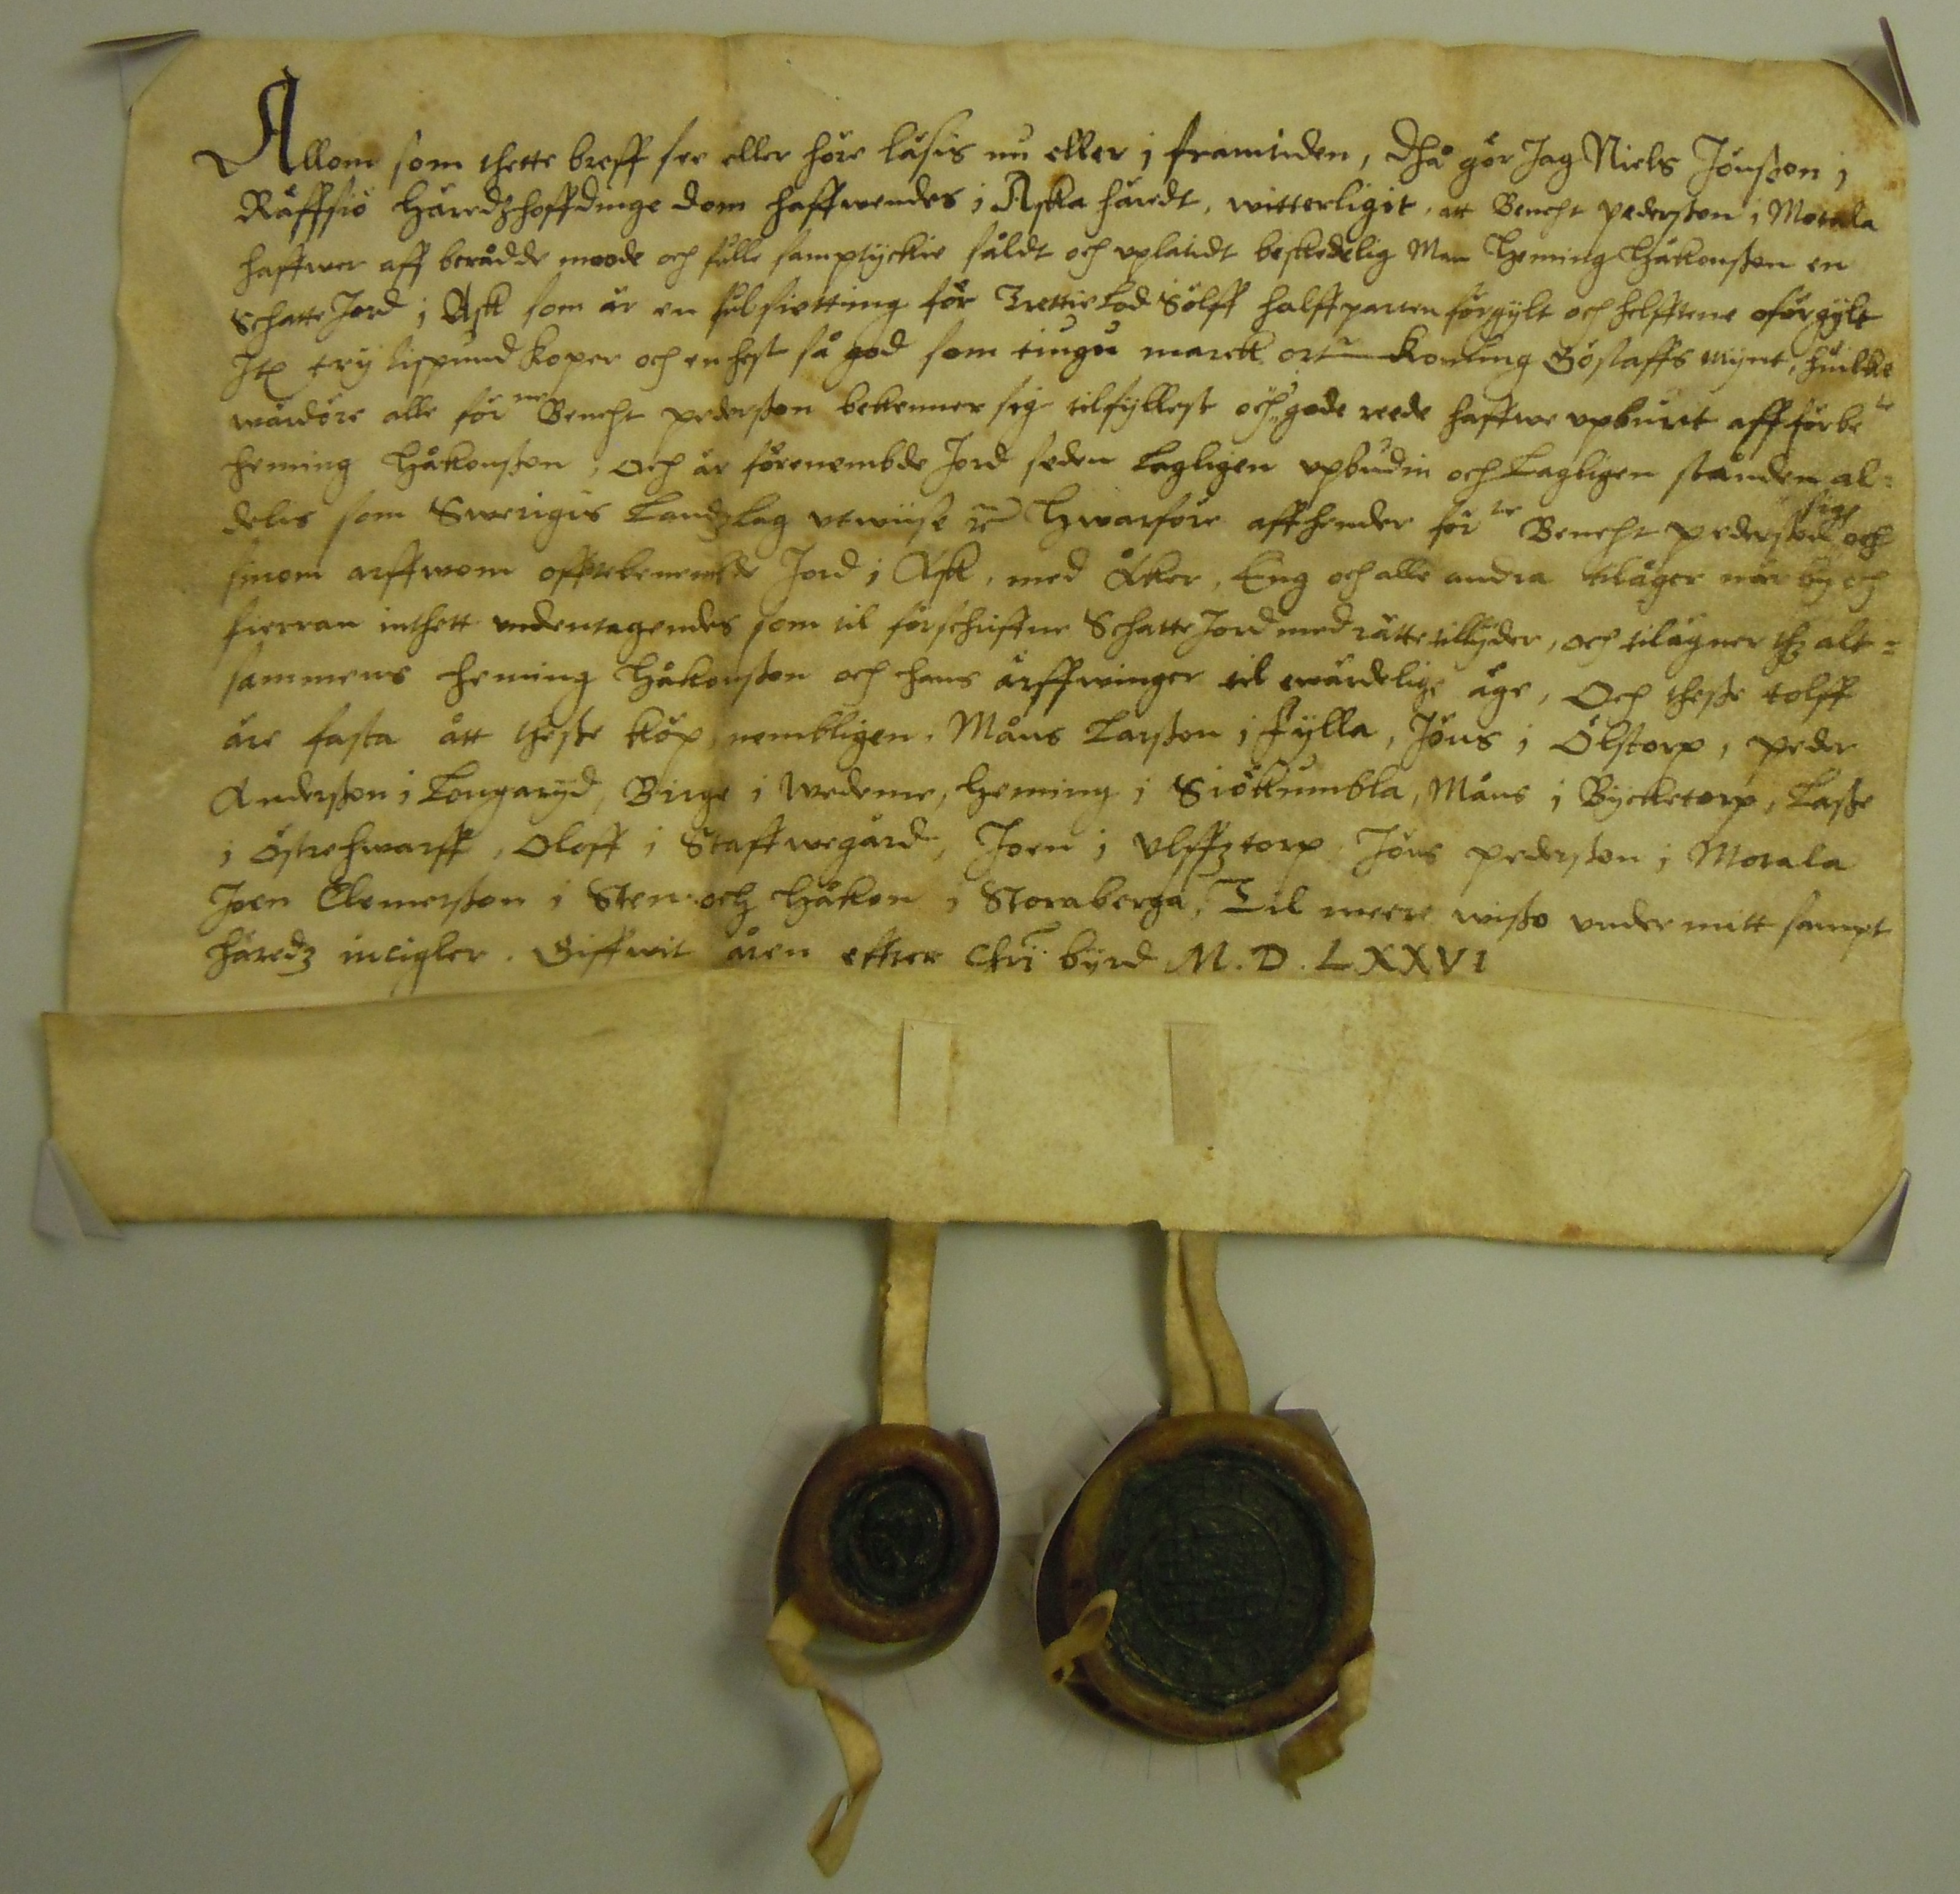 Allom som thette breff see eller höre läsis nu eller i framtiden, Dhå gör Jag Niels Jönßon i
Räffsiö Häredzhoffdinge dom haffwendes i Aska häredt, witterligit, att Bencht pederßon i Motala
haffwer aff berådde moode och fulle samptyckie såldt och uplatidt beskedelig Man Heming Håkonßon en
Schatte Jord i Ask som är en fulsietting för Trettie Lod Sölff halffparten förgylt och helfftene oförgylt
Jtem try lispund koper och en hest så god som tiugu marck ort Konung Göstaffs mynt, huilke
wärdöre alle för:ne Bencht pederßon bekenner sig tilfyllest och gode reede haffwe upburit aff förbe:te
Heming Håkonßon, Och är förenembde Jord seden Lagligen upbudin och Lagligen stånden al=
deles som Swerigis Landzlag utwiise etc Hwarföre affhender för:ne Bencht pederßon sigh och
sinom arffwom offtebenembde Jord i Ask, med Åker, Eng och alle andra tiläger när by och
fierran inthett undentagendes som til förschriffne Schatte Jord med rätte tillyder, och tilägner thz alt=
sammens Heming Håkonßon och hans ärffwinger til ewärdelige äge, Och theße tolff
äre fasta ått theße köp, nembligen, Måns Larßon i Fylla, Jöns i Ölstorp, Peder
Anderßon i Longaryd, Birge i Wedeme, Heming i Siökumbla, Måns i Bycketorp, Laße
i Östrehwarff, Oloff i Staffwegård, Joen i Ulffztorp, Jöns pederßon i Motala
Joen Clemetßon i Sten och Håkon i Storaberga, Til meere wißo under mitt sampt
häredz incigler. Giffwit åren effter Chri byrd M.D.LXXVI